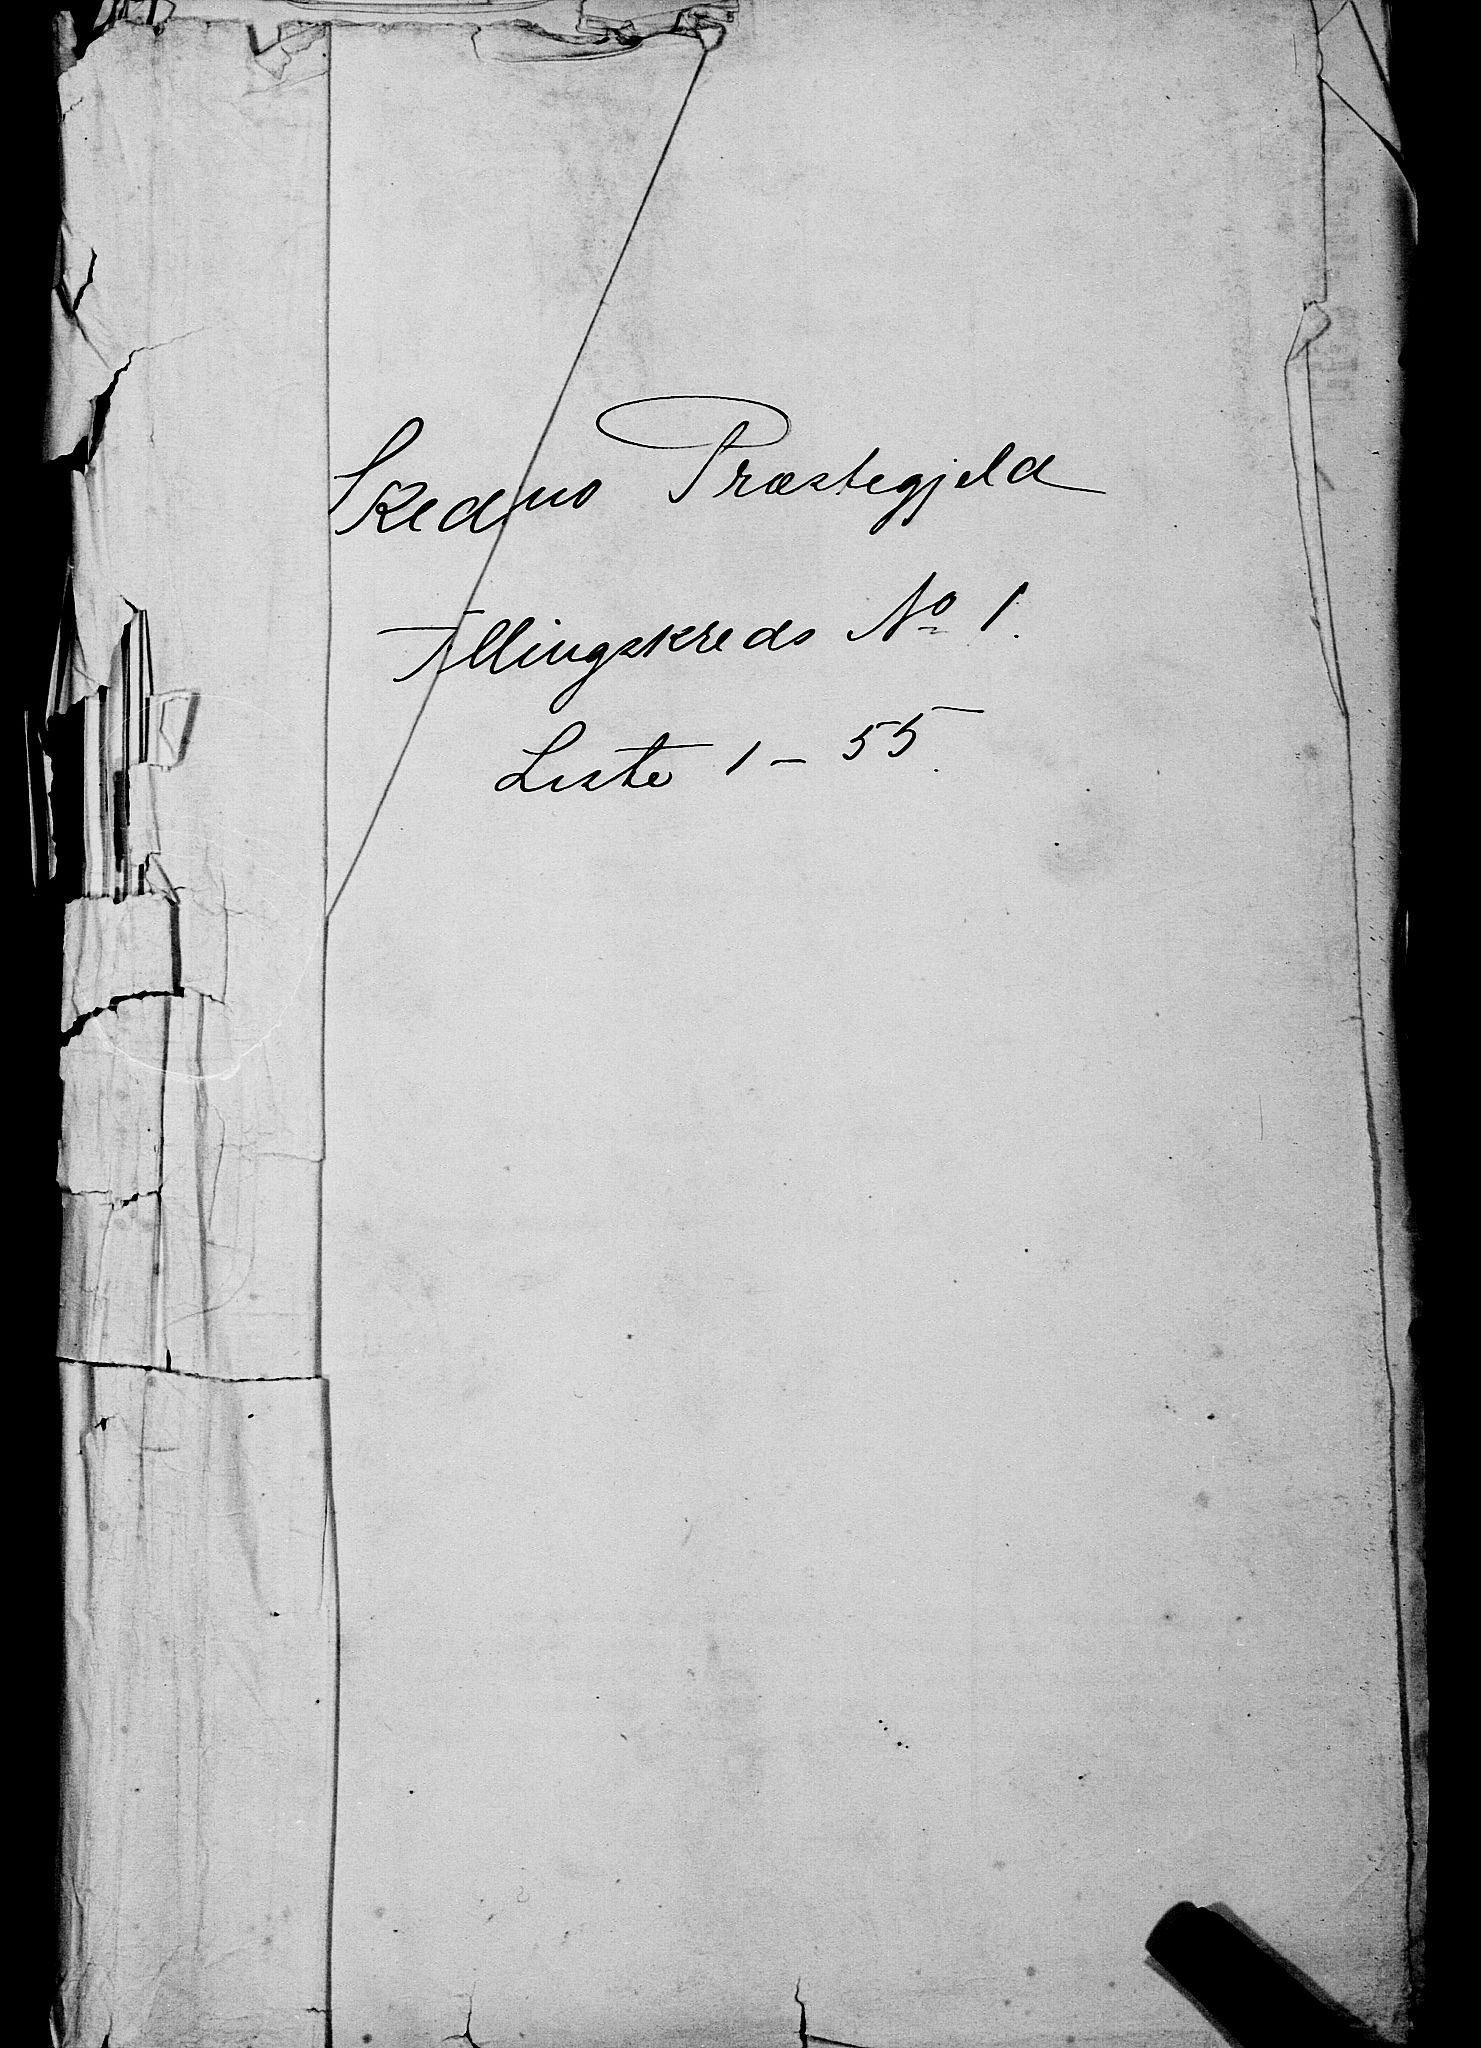 Skedsmo Præstegjeld
Tællingskreds No 1.
Liste 1 – 55.